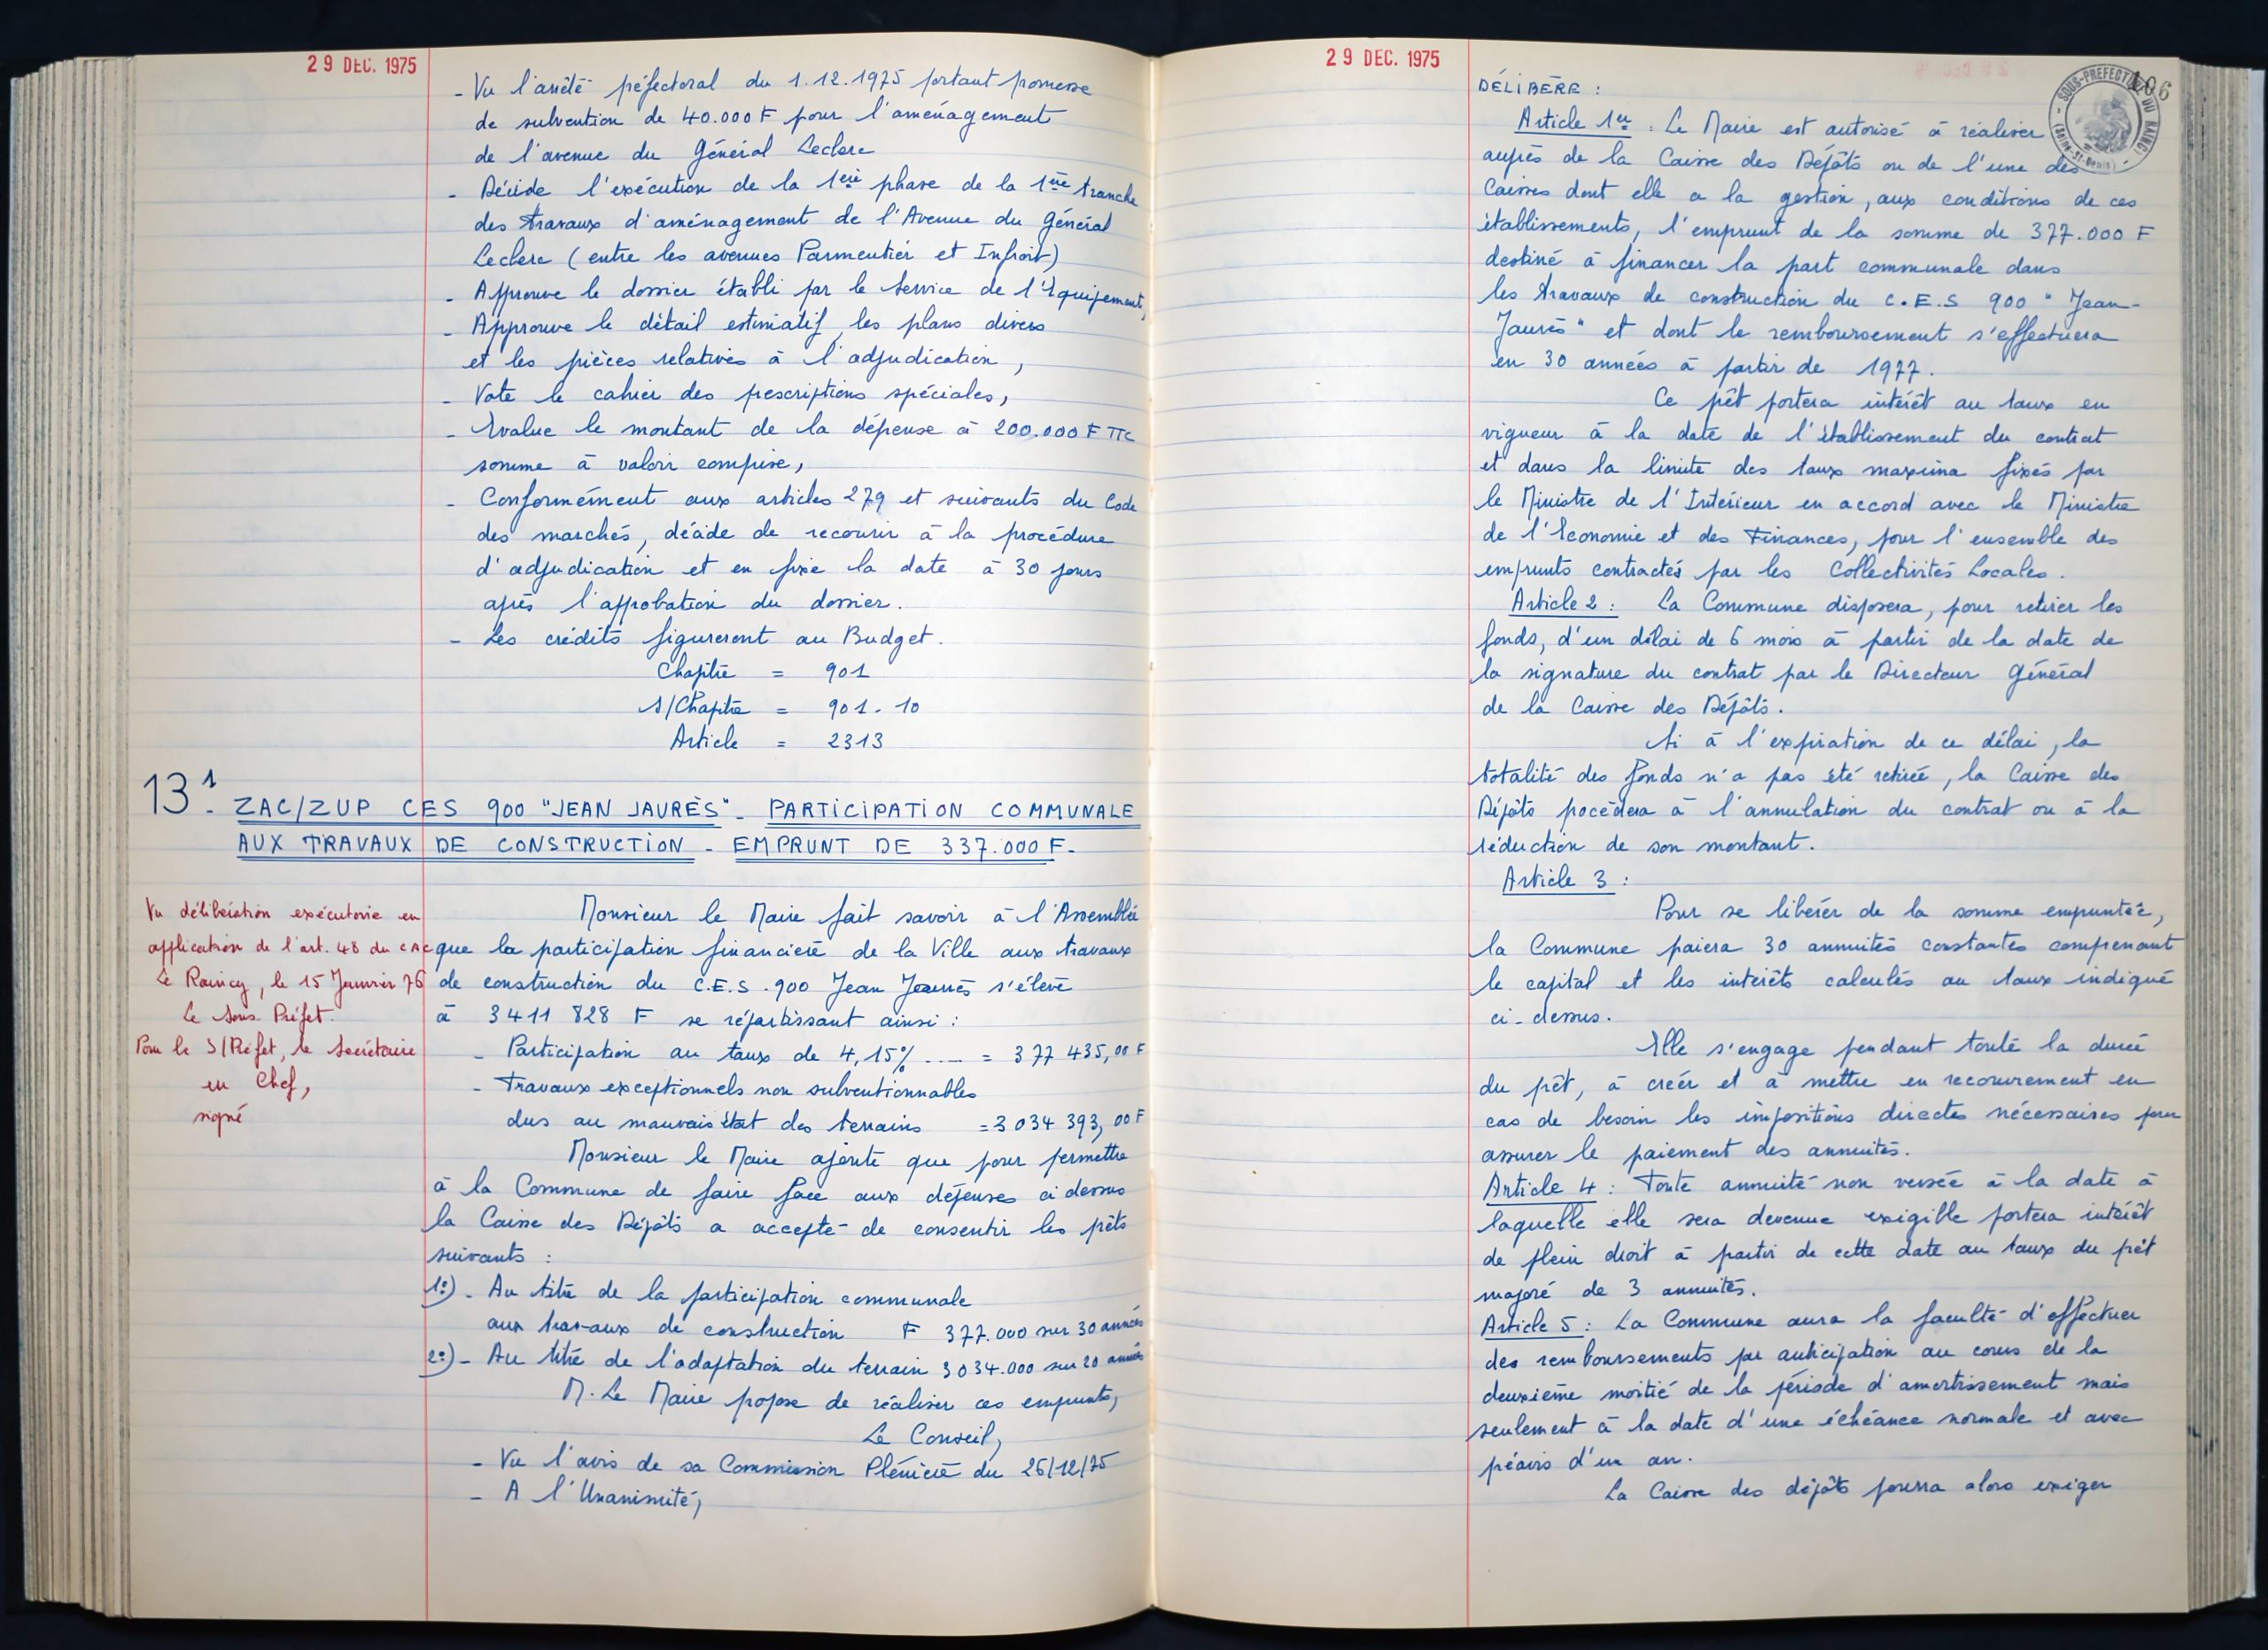 29 DEC. 1975
- Vu l'arrêté préfectoral du 1.12.1975 portant promesse
de subvention de 40.000 F pour l'aménagement
de l'avenue du Général Leclerc
- Décide l'exécution de la 1ère phase de la 1ère tranche
des travaux d'aménagement de l'Avenue du Général
Leclerc (entre les avenues Parmentier et Infroit)
- Approuve le dossier établi par le Service de l'Equipement,
- Approuve le détail estimatif, les plans divers
et les pièces relatives à l'adjudication,
- Vote le cahier des prescriptions spéciales,
- Evalue le montant de la dépense à 200.000 F TTC
somme à valoir comprise,
- Conformément aux articles 279 et suivants du Code
des marchés, décide de recourir à la procédure
d'adjudication et en fixe la date à 30 jours
après l'approbation du dossier.
- Les crédits figureront au Budget.
Chapitre = 901
S/Chapitre = 901.10
Article = 2313
13 1. ZAC/ZUP CES 900 "JEAN JAURÈS" - PARTICIPATION COMMUNALE
AUX TRAVAUX DE CONSTRUCTION - EMPRUNT DE 337.000 F.
Vu délibération exécutoire en
application de l'art. 48 du CAC
Le Raincy, le 15 Janvier 76
Le Sous-Préfet.
Pour le S/Préfet, le Secrétaire
en Chef,
signé
Monsieur le Maire fait savoir à l'Assemblée
que la participation financière de la Ville aux travaux
de construction du C.E.S. 900 Jean Jaurès s'élève
à 3 411 828 F se répartissant ainsi :
- Participation au taux de 4,15% .... = 377 435,00 F
- Travaux exceptionnels non subventionnables
dus au mauvais état des terrains = 3 034 393,00 F
Monsieur le Maire ajoute que pour permettre
à la Commune de faire face aux dépenses ci dessus
la Caisse des Dépôts a accepté de consentir les prêts
suivants :
1°) - Au titre de la participation communale
aux travaux de construction F 377.000 sur 30 années
2°) - Au titre de l'adaptation du terrain 3 034.000 sur 20 années
M. Le Maire propose de réaliser ces emprunts,
Le Conseil,
- Vu l'avis de sa Commission Plénière du 26/12/75
- A l'Unanimité,
29 DEC. 1975
106
SOUS-PREFECTURE DU RAINCY
(Seine-St-Denis)
DÉLIBÈRE :
Article 1er : Le Maire est autorisé à réaliser
auprès de la Caisse des Dépôts ou de l'une des
Caisses dont elle a la gestion, aux conditions de ces
établissements, l'emprunt de la somme de 377.000 F
destiné à financer la part communale dans
les travaux de construction du C.E.S 900 "Jean-
Jaurès" et dont le remboursement s'effectuera
en 30 années à partir de 1977.
Ce prêt portera intérêt au taux en
vigueur à la date de l'établissement du contrat
et dans la limite des taux maxima fixés par
le Ministre de l'Intérieur en accord avec le Ministre
de l'Economie et des Finances, pour l'ensemble des
emprunts contractés par les Collectivités Locales.
Article 2 : La Commune disposera, pour retirer les
fonds, d'un délai de 6 mois à partir de la date de
la signature du contrat par le Directeur Général
de la Caisse des Dépôts.
Si à l'expiration de ce délai, la
totalité des fonds n'a pas été retirée, la Caisse des
Dépôts procèdera à l'annulation du contrat ou à la
réduction de son montant.
Article 3 :
Pour se libérer de la somme empruntée,
la Commune paiera 30 annuités constantes comprenant
le capital et les intérêts calculés au taux indiqué
ci-dessus.
Elle s'engage pendant toute la durée
du prêt, à créer et à mettre en recouvrement en
cas de besoin les impositions directes nécessaires pour
assurer le paiement des annuités.
Article 4 : Toute annuité non versée à la date à
laquelle elle sera devenue exigible portera intérêt
de plein droit à partir de cette date au taux du prêt
majoré de 3 annuités.
Article 5 : La Commune aura la faculté d'effectuer
des remboursements par anticipation au cours de la
deuxième moitié de la période d'amortissement mais
seulement à la date d'une échéance normale et avec
préavis d'un an.
La Caisse des dépôts pourra alors exiger